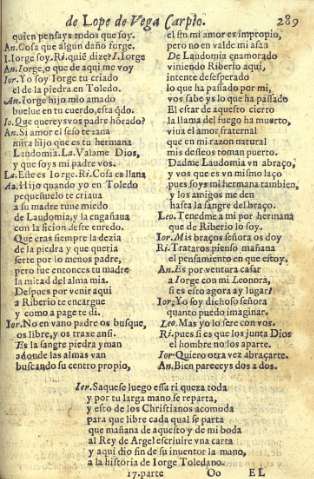 de Lope de Vega Carpio. 289
quien pensays todos que soy.
An. Cosa que algun daño forge.
I. Iorge soy. Ri. quiẽ dize? I. Iorge
An. Iorge, o que de aqui me voy
Ior. Yo soy Iorge tu criado
el de la piedra en Toledo.
An. Iorge hijo mio amado
buelue en tu cuerdo, esta q̃do.
Io. Que quereys vos padre hõrado?
An. Si amor el seso te tara
mira hijo que es tu hermana
Laudomia. La. Valame Dios,
y que soys mi padre vos.
La. Este es Iorge. Ri. Cosa es llana
An. Hijo quando yo en Toledo
pequeñuelo te criaua
a tu madre tuue miedo
de Laudomia, y la engañaua
con la ficion deste enredo.
Que eras siempre la dezia
de la piedra y que queria
serte por lo menos padre,
pero fue entonces tu madre
la mitad del alma mia.
Despues por venir aqui
a Riberio te encargue
y como a page te di.
Ior. No en vano padre os busque,
os libre, y os traxe ansi.
Es la sangre piedra yman
adonde las almas van
buscando su centro propio,
el sin mi amor es impropio,
pero no en valde mi afan
De Laudomia enamorado
viniendo Riberio aqui,
intente desesperado
lo que ha passado por mi,
vos sabeys lo que ha passado
El estar de aquesto cierto
la llama del fuego ha muerto,
viua el amor fraternal
que en mi razon natural
mis desseos toman puerto.
Dadme Laudomia vn abraço,
y vos que es vn mismo laço
pues soys mi hermana tambien,
y los amigos me den
hasta la sangre del braço.
Leo. Tenedme a mi por hermana
que de Riberio lo soy.
Ior. Mis braços señora os doy
Ri. Trataros pienso mañana
el pensamiento en que estoy.
An. Es por ventura casar
a Iorge con mi Leonora,
si es esto agora ay lugar!
Ior. Yo soy dichoso señora
quanto puedo imaginar.
Leo. Mas yo lo sere con vos.
Ri. pues si es que los junta Dios
el hombre no los aparte.
Ior. Quiero otra vez abraçarte.
An. Bien pareceys dos a dos.
Ior. Saquese luego essa riqueza toda
y por tu larga mano se reparta,
y esto de los Christianos acomoda
para que libre cada qual se parta
que mañana de aquesto y de mi boda
al Rey de Argel escriuire vna carta
y aqui dio fin de su inuentor la mano,
a la historia de Iorge Toledano.
17. parte Oo EL